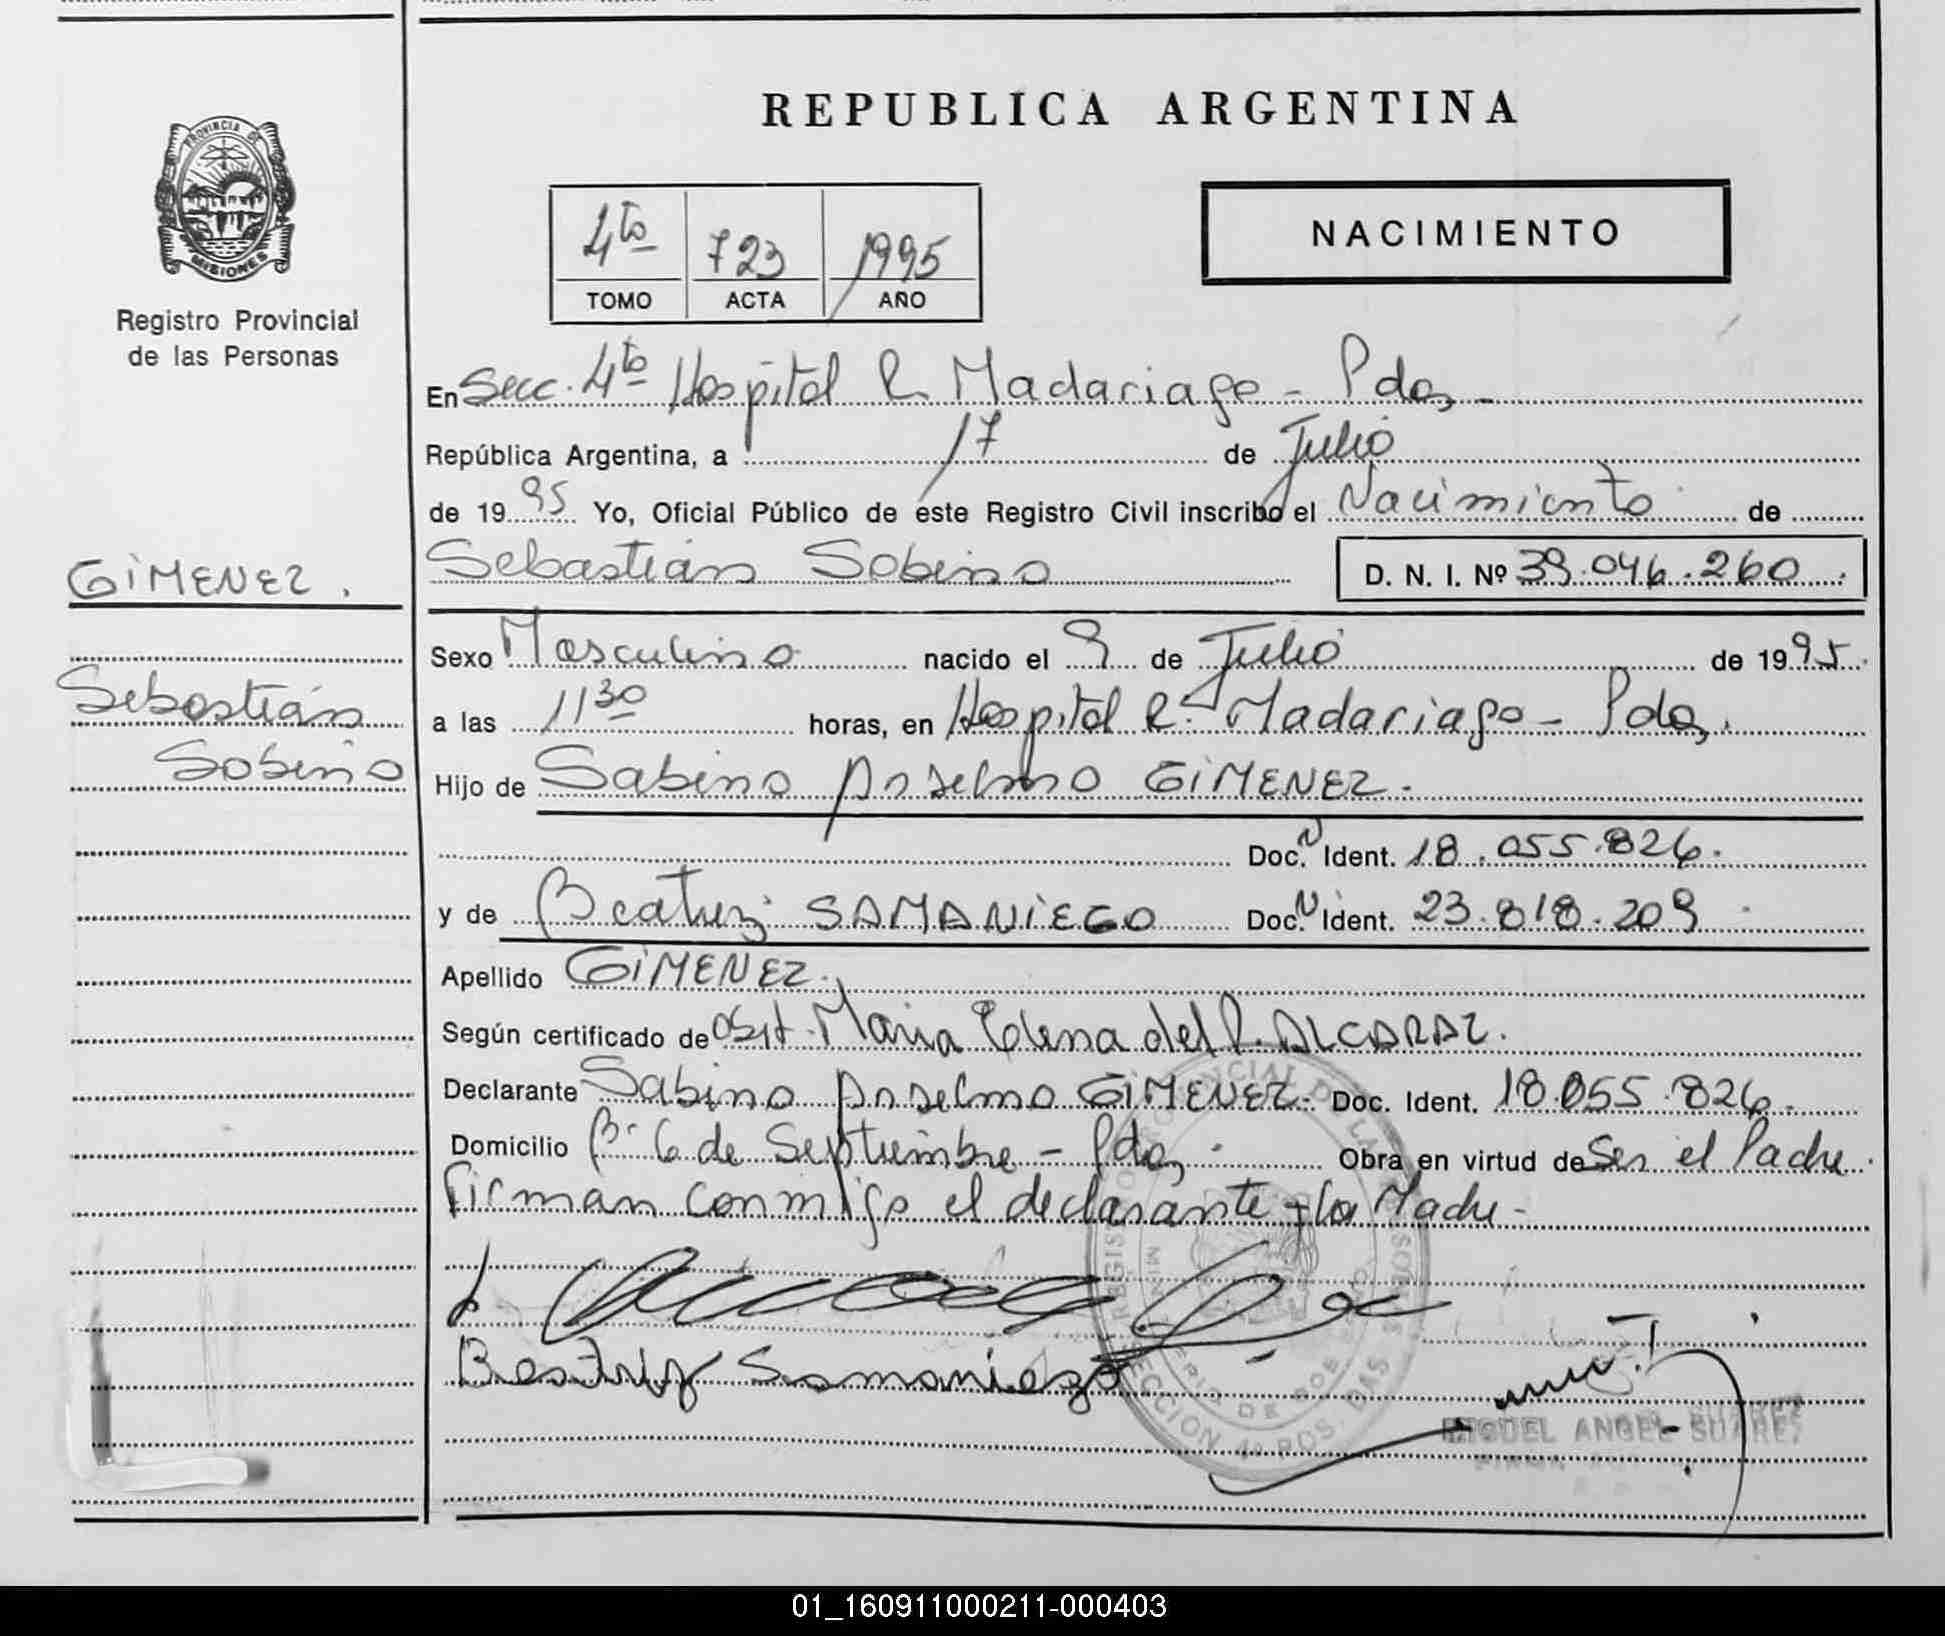 REPUBLICA ARGENTINA
PROVINCIA DE
MISIONES
Registro Provincial
de las Personas
4to 723 1995
TOMO ACTA AÑO
NACIMIENTO
En Secc. 4to Hospital R. Madariaga - Pdas -
República Argentina, a 17 de Julio
de 1995 Yo, Oficial Público de este Registro Civil inscribo el Nacimiento de
GIMENEZ.
Sebastián Sabino D. N. I. Nº 39.046.260
Sexo Masculino nacido el 9 de Julio de 1995.
Sebastián
Sabino
a las 11 30 horas, en Hospital R. Madariaga - Pdas.
Hijo de Sabino Anselmo GIMENEZ.
Doc. N Ident. 18.055.826.
y de Beatriz SAMANIEGO Doc. N Ident. 23.818.209
Apellido GIMENEZ.
Según certificado de Obst. Maria Elena del R. ALCARAZ.
Declarante Sabino Anselmo GIMENEZ. Doc. Ident. 18.055.826.
Domicilio Bº 6 de Septiembre - Pdas. Obra en virtud de Ser el Padre.
Firman conmigo el declarante y la Madre -
Beatriz Samaniego
MIGUEL ANGEL SUAREZ
SECCION 4ª POSADAS
01_160911000211-000403